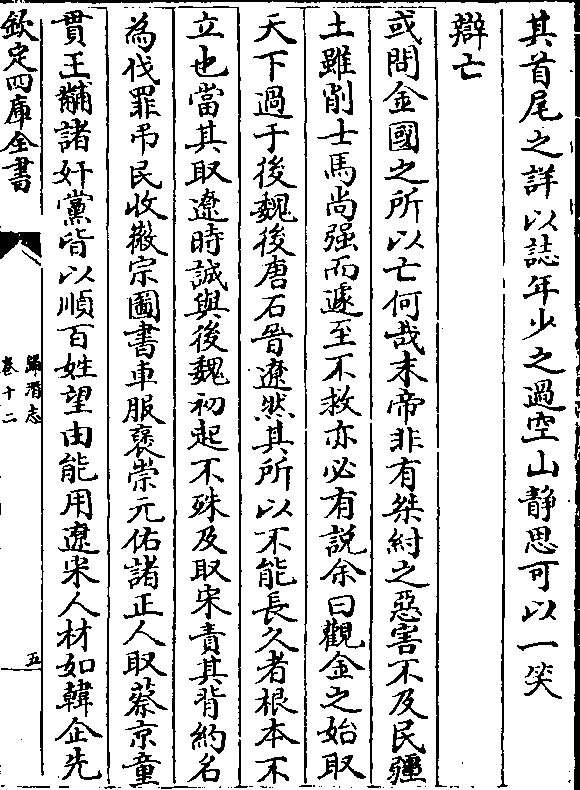 其首尾之詳以誌年少之過空山静思可以一笑
辯亡
或問金國之所以亡何哉末帝非有桀紂之惡害不及民疆
土雖削士馬尚强而遽至不救亦必有説余曰觀金之始取
天下過于後魏後唐石晉遼然其所以不能長久者根本不
立也當其取遼時誠與後魏初起不殊及取宋責其背約名
為伐罪弔民收徽宗圖書車服褒崇元佑諸正人取蔡京童
貫王黼諸奸黨皆以順百姓望由能用遼宋人材如韓企先
欽定四庫全書
歸潛志
卷十二
五